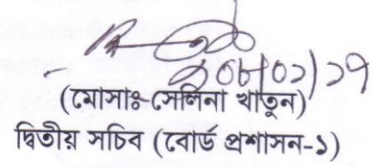 (মোসাঃ-সেলিনা খাতুন)
দ্বিতীয় সচিব (বোর্ড প্রশাসন-১)